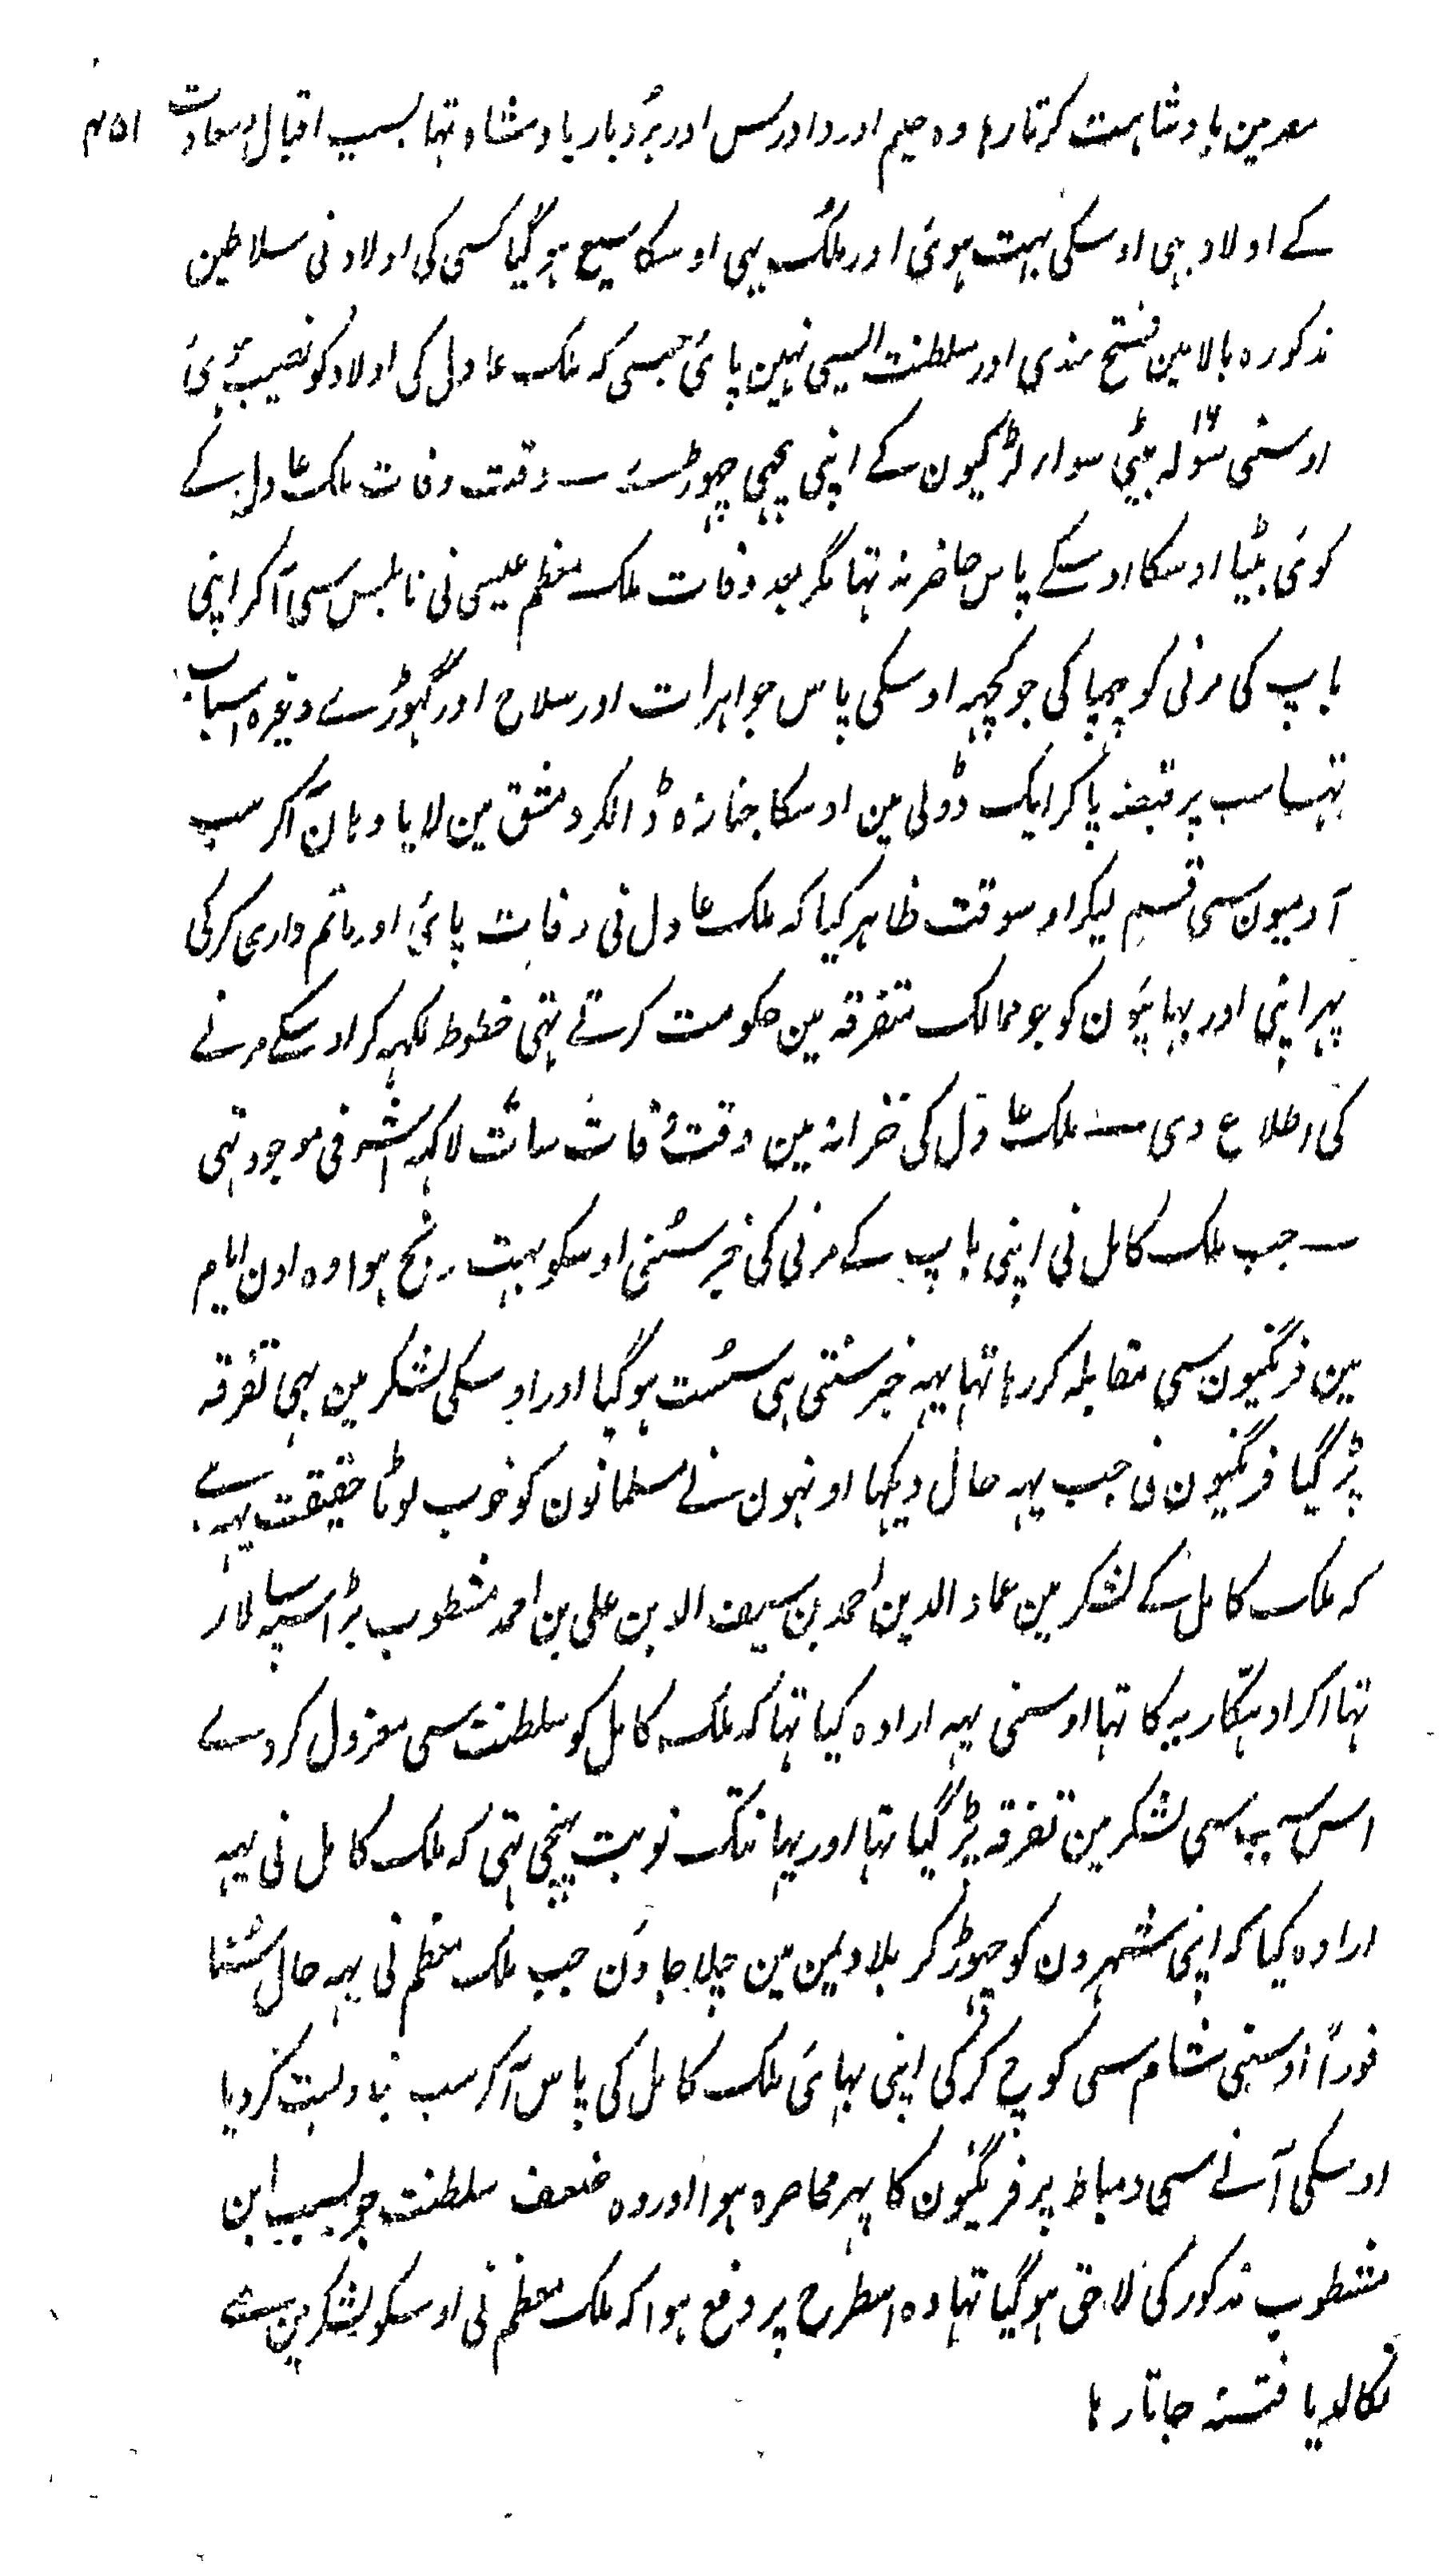 مصر مین بادشاہت کرتا رہا وہ حلیم اور دادرس اور بُردبار بادشاہ تہا بسبب اقبال و سعادت ۴۵۱
کے اولاد بہی اوسکی بہت ہوئی اور ملک بہی اوسکا وسیع ہو گیا کسی کی اولاد نی سلاطین
مذکورہ بالا مین فتح مندی اور سلطنت ایسی نہین پائی جیسی کہ ملک عادل کی اولاد کو نصیب ہوئی
اوسنی سولہ ۱۶ بیٹی سوار لڑکیون کے اپنی پیچہی چہوڑے ــ وقت وفات ملک عادل کے
کوئی بیٹا اوسکا اوسکے پاس حاضر نہ تہا مگر بعد وفات ملک معظم عیسی نی نابلس سی آکر اپنی
باپ کی مرنی کو چہپا کی جو کچہہ اوسکی پاس جواہرات اور سلاح اور گہوڑے وغیرہ اسباب
تہا سب پر قبضہ پاکر ایک ڈولی مین اوسکا جنازہ ڈالکر دمشق مین لایا وہان آکر سب
آدمیون سی قسم لیکر اوسوقت ظاہر کیا کہ ملک عادل نی وفات پائی اور ماتم داری کرکی
پہر اپنی اور بہائیون کو جو ممالک متفرقہ مین حکومت کرتے تہی خطوط لکہہ کر اوسکے مرنے
کی اطلاع دی ــ ملک عادل کی خزانہ مین وقت وفات سات لاکہہ اشرفی موجود تہی
ــ جب ملک کامل نی اپنی باپ کے مرنی کی خبر سُنی اوسکو بہت رنج ہوا وہ اون ایام
مین فرنگیون سی مقابلہ کر رہا تہا یہہ خبر سنتی ہی سُست ہو گیا اور اوسکی لشکر مین بہی تفرقہ
پڑ گیا فرنگیون نی جب یہہ حال دیکہا اونہون نے مسلمانون کو خوب لوٹا حقیقت یہہ ہے
کہ ملک کامل کے لشکر مین عماد الدین احمد بن سیف الدین علی بن احمد مشطوب بڑا سپہ سالار
تہا اکراد ہکّاریہ کا تہا اوسنی یہہ ارادہ کیا تہا کہ ملک کامل کو سلطنت سی معزول کردے
اس سبب سی لشکر مین تفرقہ پڑ گیا تہا اور یہانتک نوبت پہنچی تہی کہ ملک کامل نی یہہ
ارادہ کیا کہ اپنی شہرون کو چہوڑ کر بلاد یمن مین چلا جاوُن جب ملک معظم نی یہہ حال سُنا
فوراً اوسنی شام سی کوچ کرکی اپنی بہائی ملک کامل کی پاس آکر سب بندوبست کردیا
اوسکی آنے سی دمیاط پر فرنگیون کا پہر محاصرہ ہوا اور وہ ضعف سلطنت جو بسبب ابن
مشطوب مذکور کی لاحق ہو گیا تہا وہ اسطرح پر دفع ہوا کہ ملک معظم نی اوسکو لشکر مین سے
نکالدیا فتنہ جاتا رہا